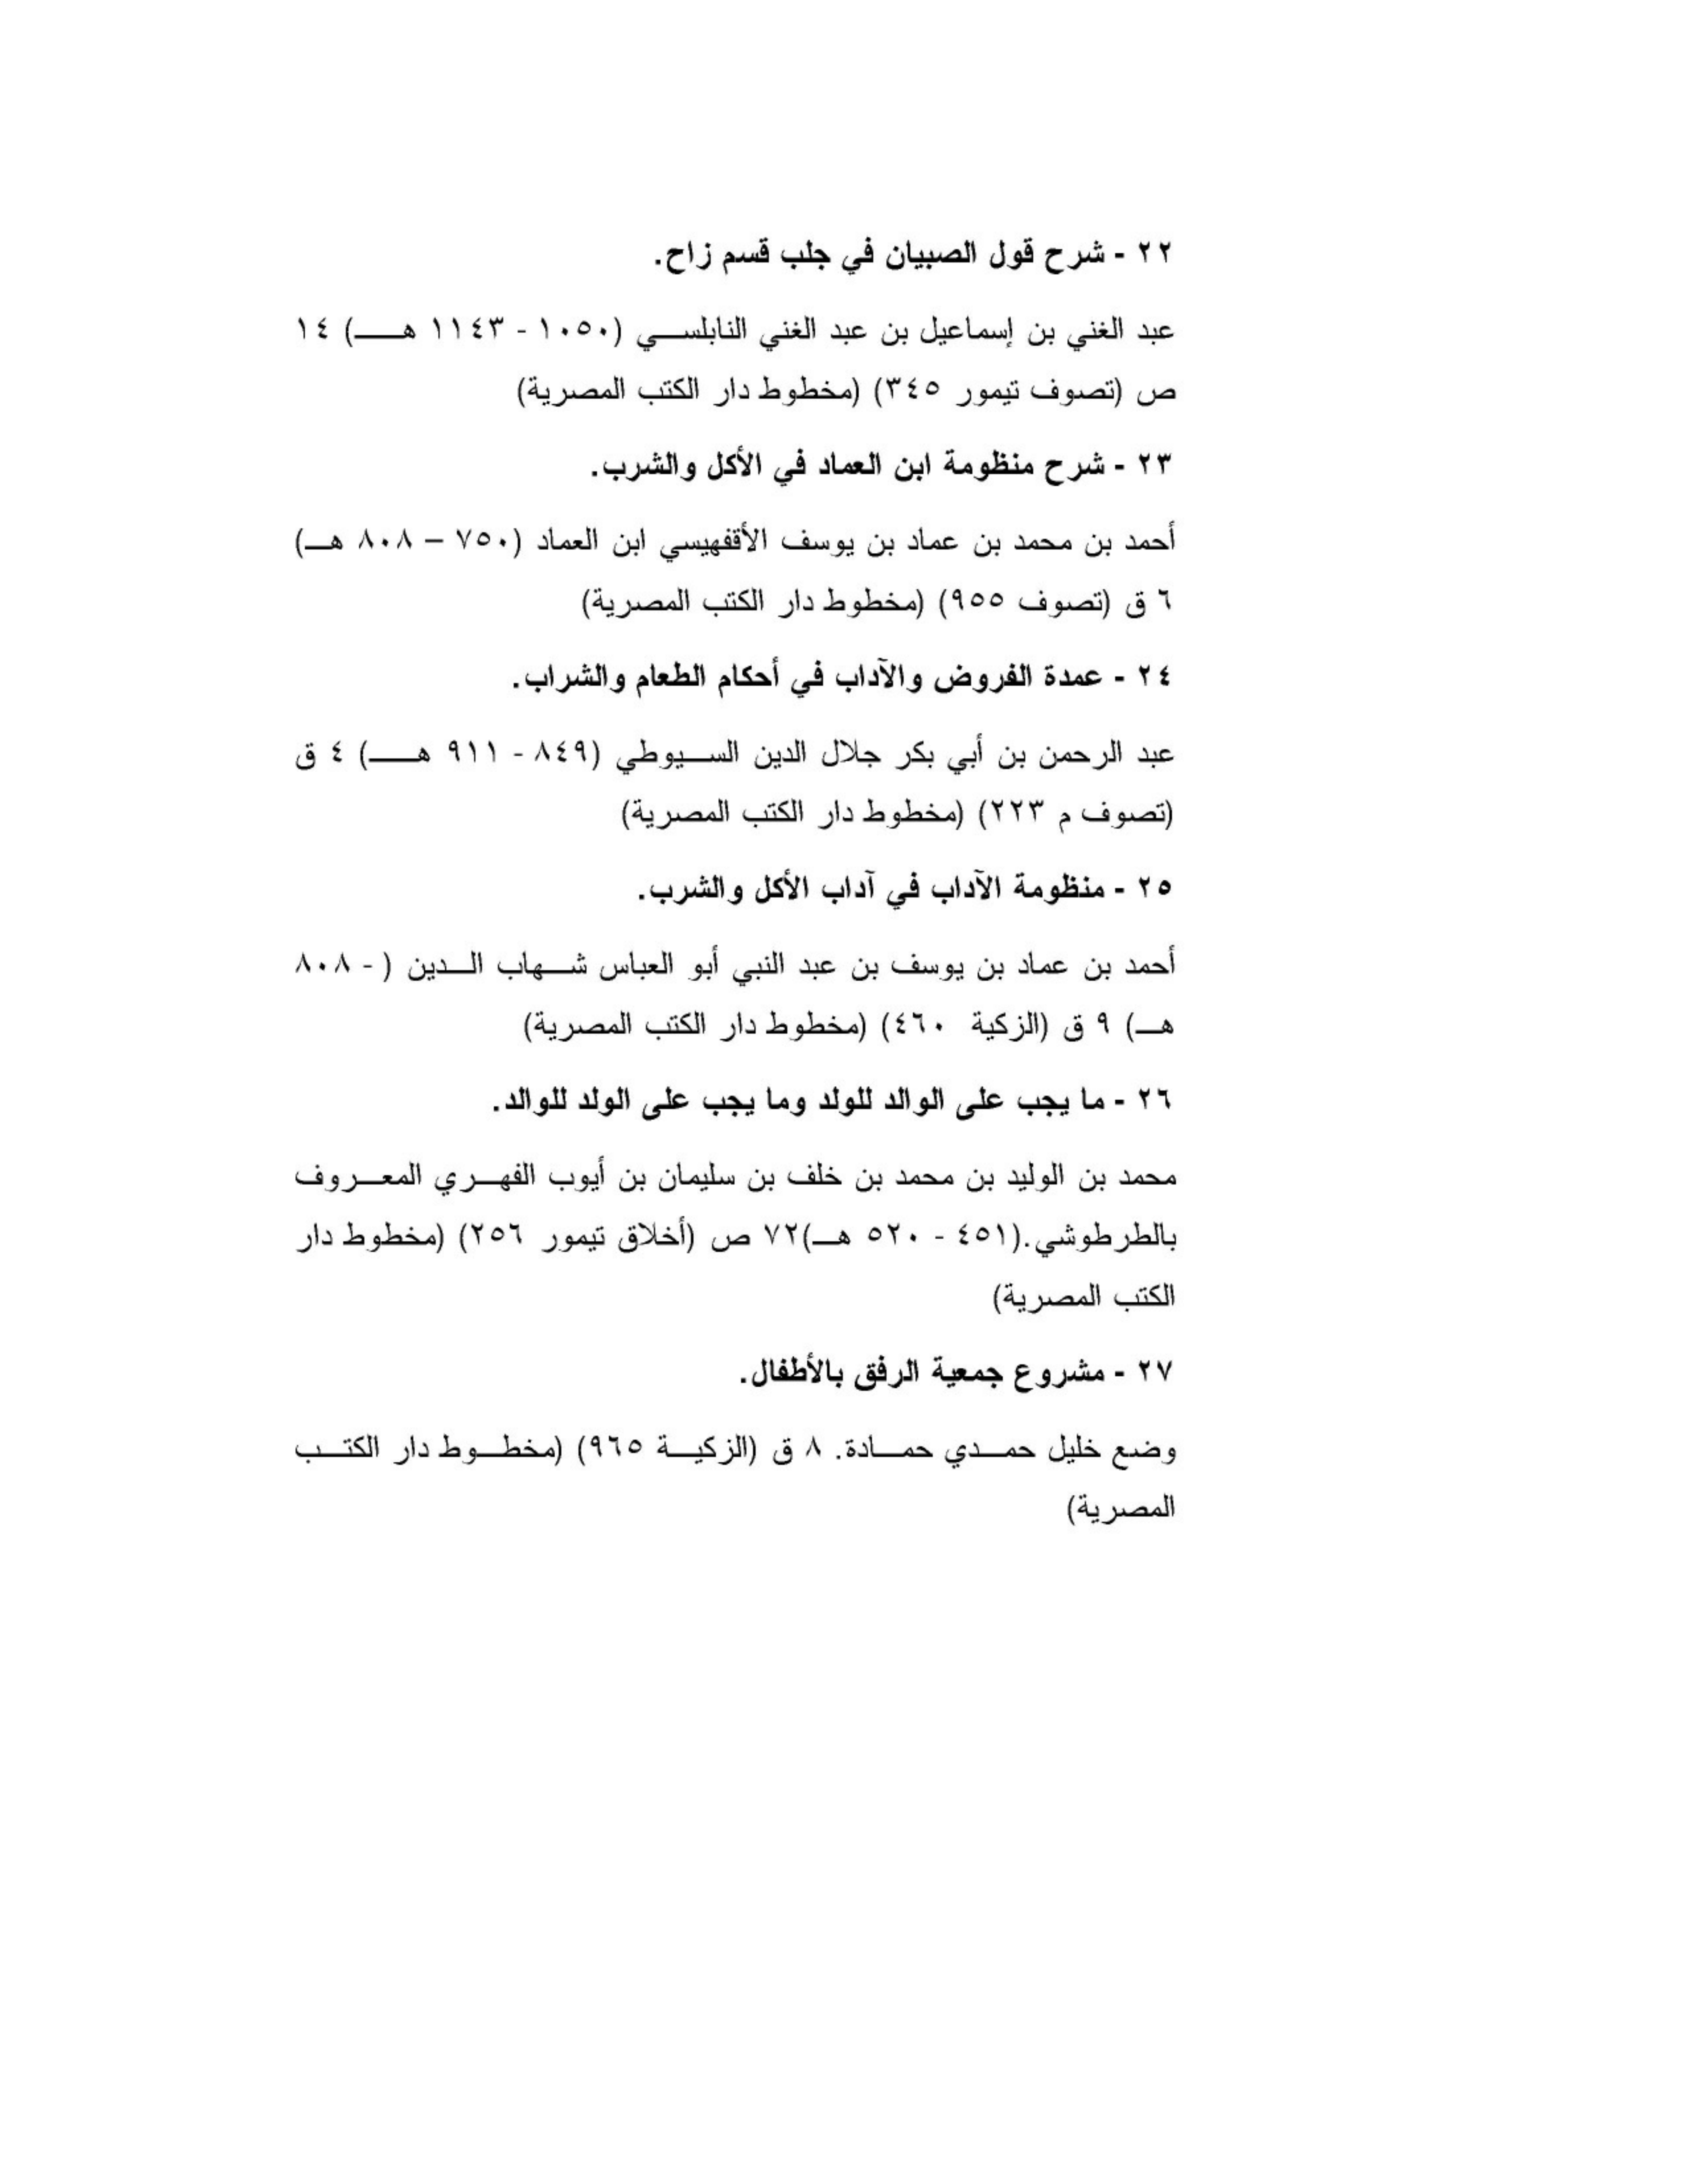 ٢٢ - شرح قول الصبيان في جلب قسم زاح.
عبد الغني بن إسماعيل بن عبد الغني النابلسي (١٠٥٠ - ١١٤٣ هـ) ١٤
ص (تصوف تيمور ٣٤٥) (مخطوط دار الكتب المصرية)
٢٣ - شرح منظومة ابن العماد في الأكل والشرب.
أحمد بن محمد بن عماد بن يوسف الأقفهيسي ابن العماد (٧٥٠ – ٨٠٨ هـ)
٦ ق (تصوف ٩٥٥) (مخطوط دار الكتب المصرية)
٢٤ - عمدة الفروض والآداب في أحكام الطعام والشراب.
عبد الرحمن بن أبي بكر جلال الدين السيوطي (٨٤٩ - ٩١١ هـ) ٤ ق
(تصوف م ٢٢٣) (مخطوط دار الكتب المصرية)
٢٥ - منظومة الآداب في آداب الأكل والشرب.
أحمد بن عماد بن يوسف بن عبد النبي أبو العباس شهاب الدين ( - ٨٠٨
هـ) ٩ ق (الزكية ٤٦٠) (مخطوط دار الكتب المصرية)
٢٦ - ما يجب على الوالد للولد وما يجب على الولد للوالد.
محمد بن الوليد بن محمد بن خلف بن سليمان بن أيوب الفهري المعروف
بالطرطوشي.(٤٥١ - ٥٢٠ هـ)٧٢ ص (أخلاق تيمور ٢٥٦) (مخطوط دار
الكتب المصرية)
٢٧ - مشروع جمعية الرفق بالأطفال.
وضع خليل حمدي حمادة. ٨ ق (الزكية ٩٦٥) (مخطوط دار الكتب
المصرية)